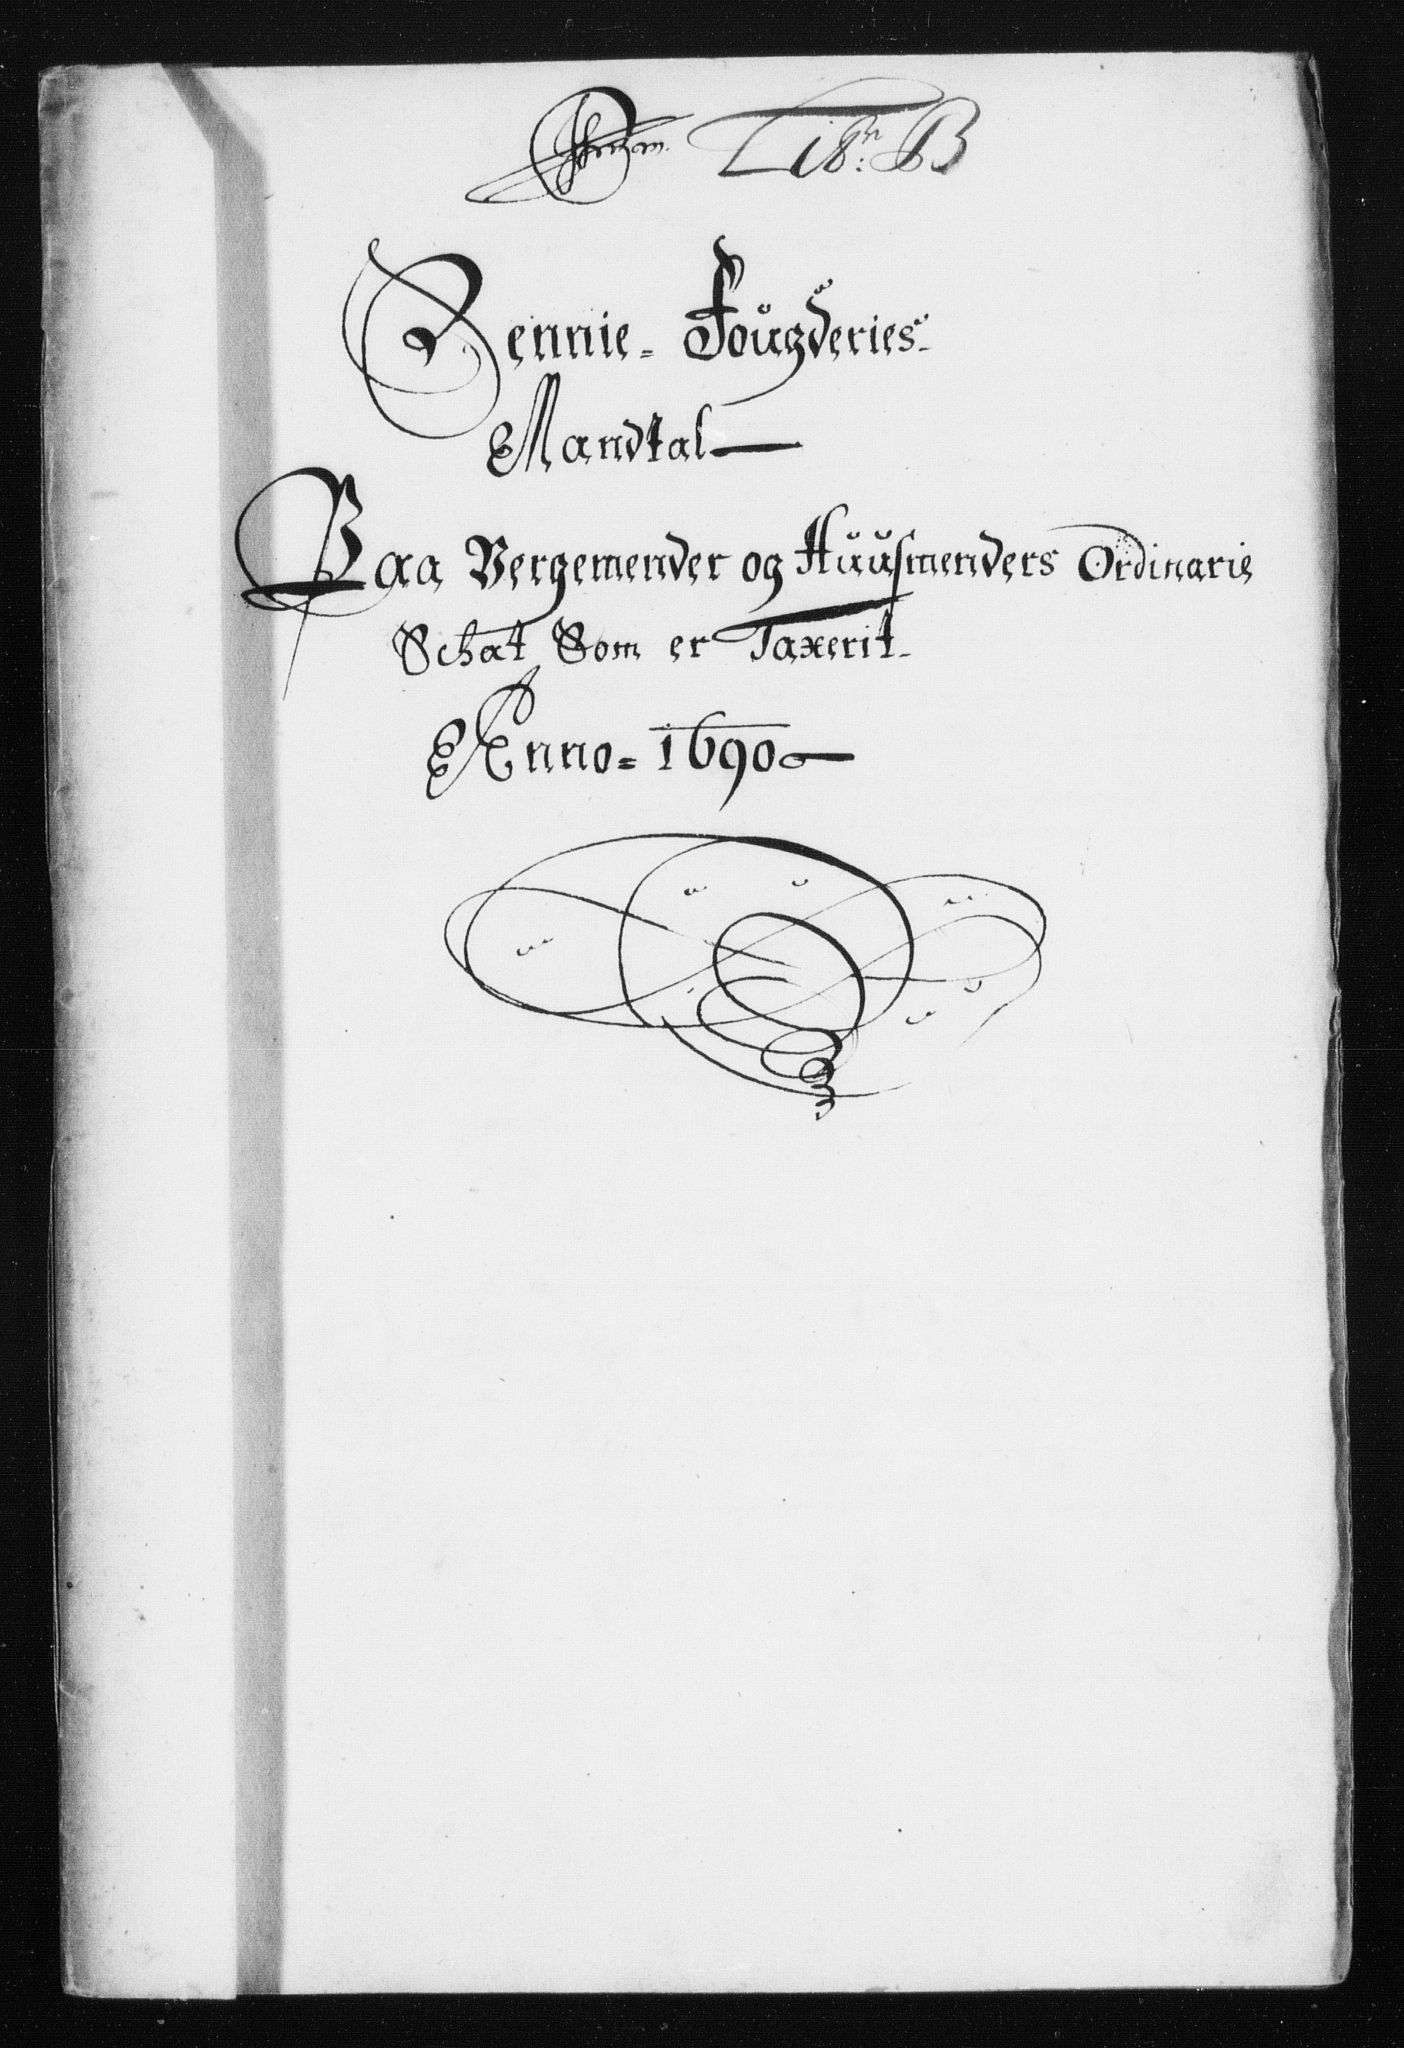 Lit: B
Sennie- Fougderies-
Mandtal
Paa Vergemender og Huusmenders Ordinarie
Schat Som er Taxerit-
Anno= 1690